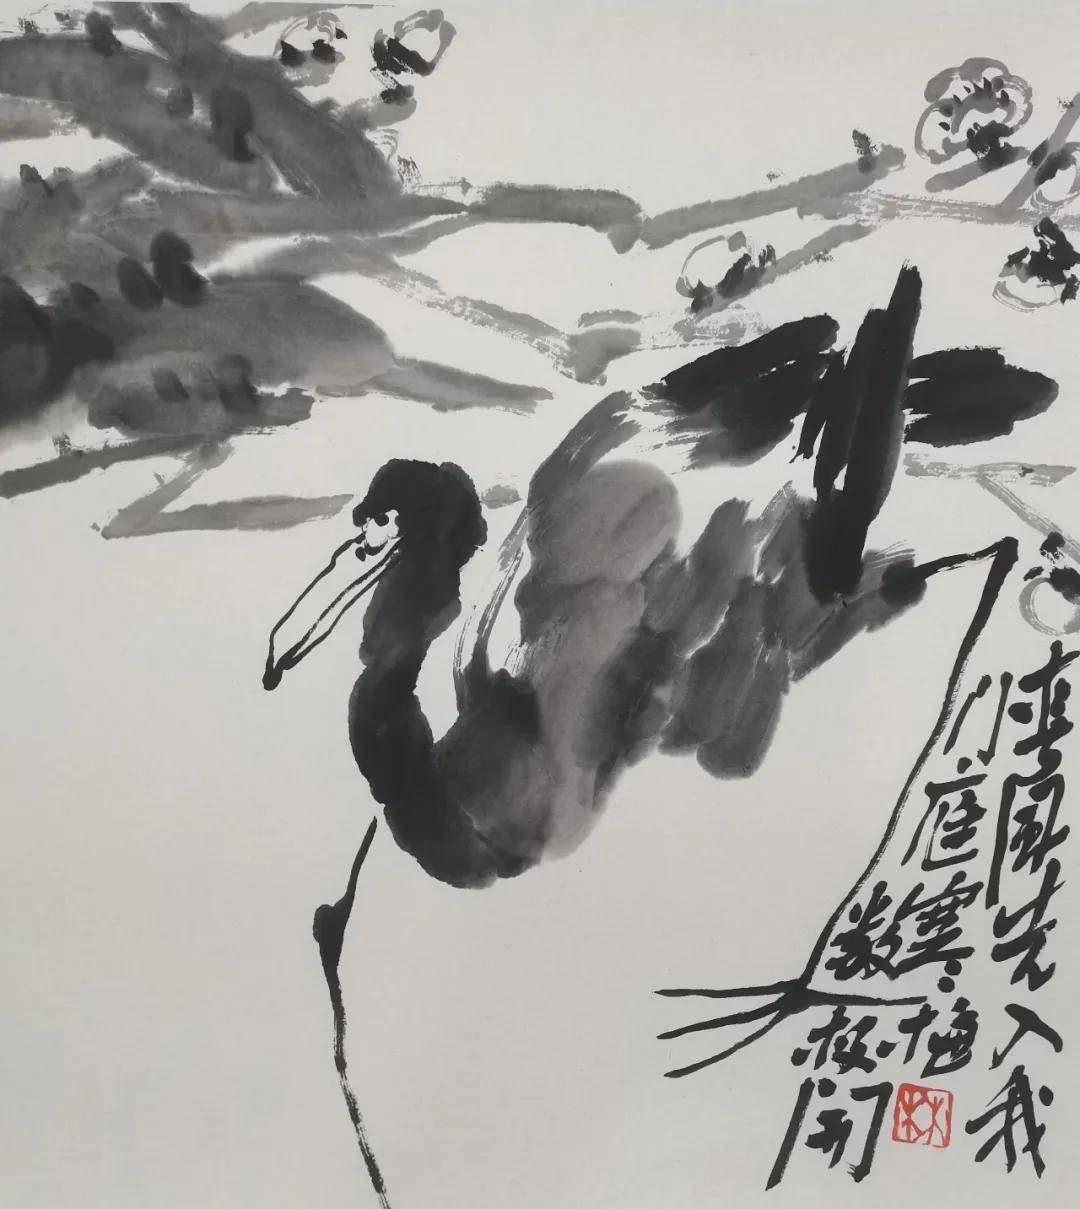 風先入我
門庭寒梅
數枝開
林